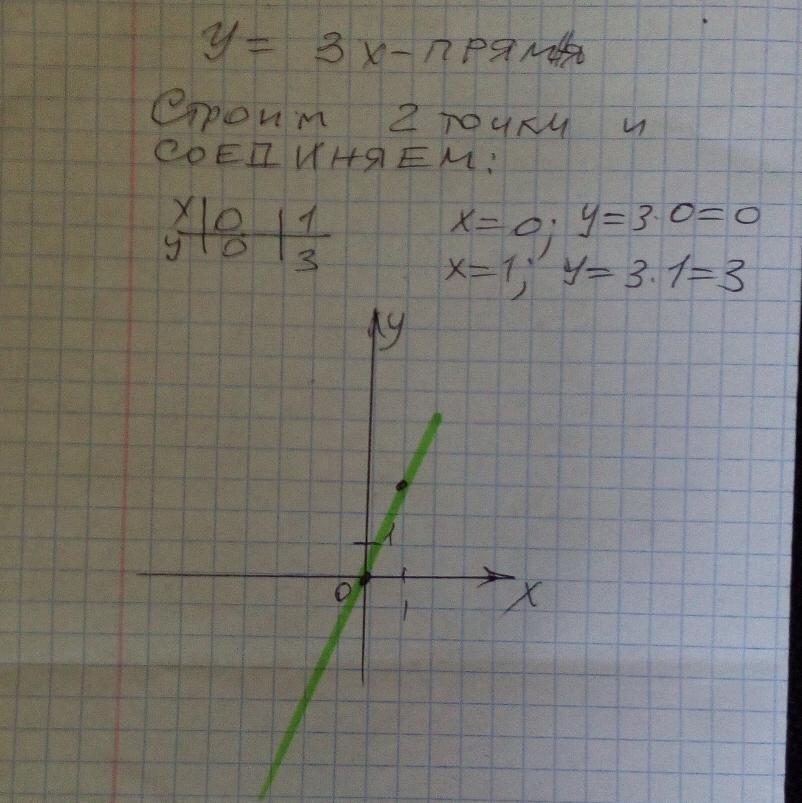 y = 3x - прямая
Строим 2 точки и
соединяем:
x | 0 | 1
y | 0 | 3
x=0; y=3·0=0
x=1; y=3·1=3
y
1
0
1
x